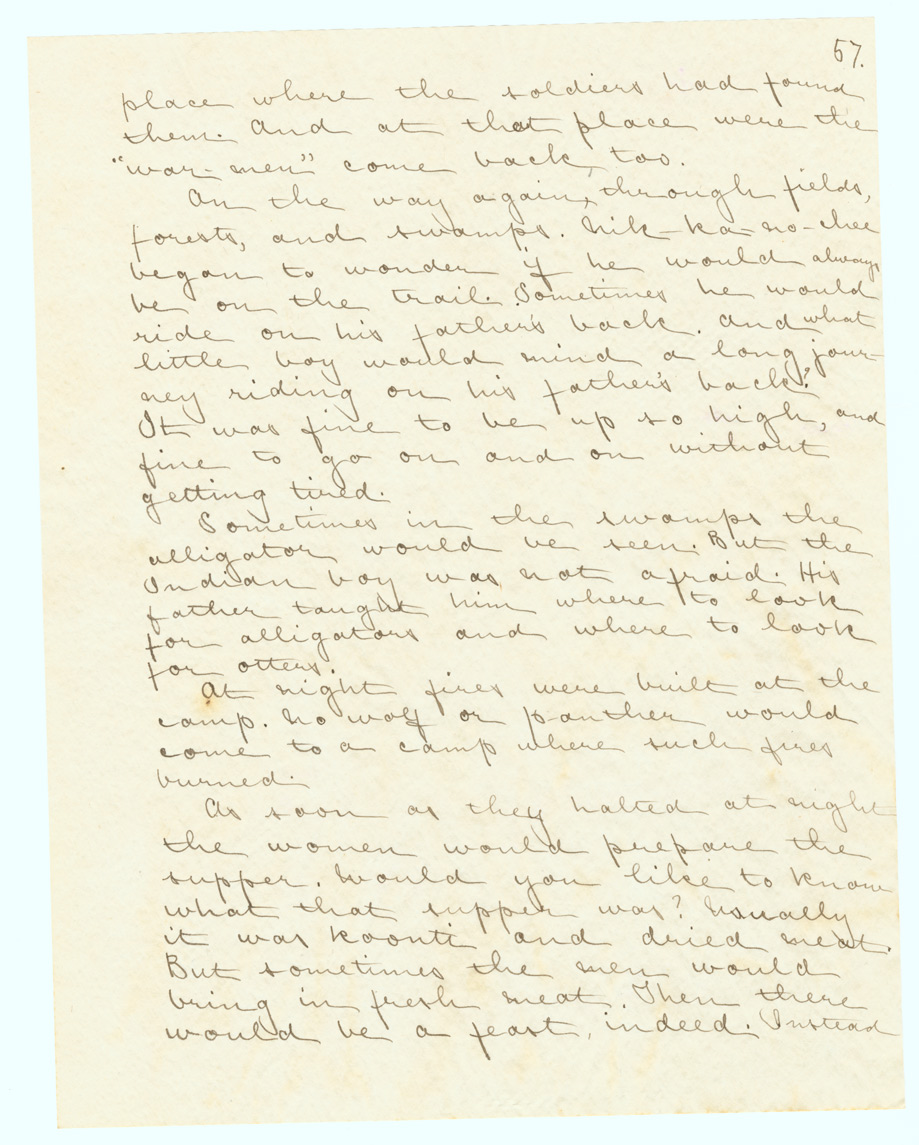 57.
place where the soldiers had found
them. And at that place were the
"war-men" come back, too.
On the way again, through fields,
forests, and swamps. Nik-ka-no-chee
began to wonder if he would always
be on the trail. Sometimes he would
ride on his father's back. And what
little boy would mind a long jour-
ney riding on his father's back?
It was fine to be up so high, and
fine to go on and on without
getting tired.
Sometimes in the swamps the
alligator would be seen. But the
Indian boy was not afraid. His
father taught him where to look
for alligators and where to look
for otters.
At night fires were built at the
camp. No wolf or panther would
come to a camp where such fires
burned.
As soon as they halted at night
the women would prepare the
supper. Would you like to know
what that supper was? Usually
it was koonti and dried meat.
But sometimes the men would
bring in fresh meat. Then there
would be a feast, indeed. Instead